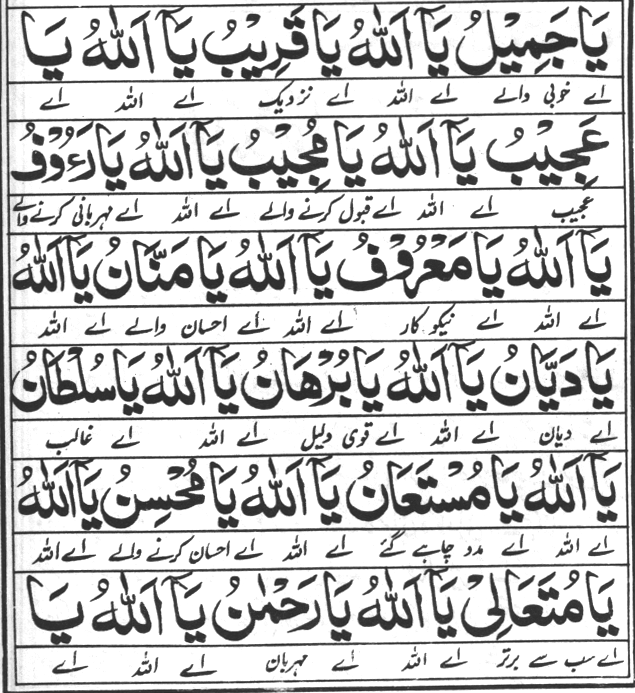 يَا جَمِيْلُ يَآ اَللهُ يَا قَرِيْبُ يَآ اَللهُ يَا
اے خوبی والے اے اللہ اے نزدیک اے اللہ اے
عَجِيْبُ يَآ اَللهُ يَا مُجِيْبُ يَآ اَللهُ يَا رَءُوْفُ
عجیب اے اللہ اے قبول کرنے والے اے اللہ اے مہربانی کرنے والے
يَآ اَللهُ يَا مَعْرُوْفُ يَآ اَللهُ يَا مَنَّانُ يَآ اَللهُ
اے اللہ اے نیکو کار اے اللہ اے احسان والے اے اللہ
يَا دَيَّانُ يَآ اَللهُ يَا بُرْهَانُ يَآ اَللهُ يَا سُلْطَانُ
اے دیان اے اللہ اے قوی دلیل اے اللہ اے غالب
يَآ اَللهُ يَا مُسْتَعَانُ يَآ اَللهُ يَا مُحْسِنُ يَآ اَللهُ
اے اللہ اے مدد چاہے گئے اے اللہ اے احسان کرنے والے اے اللہ
يَا مُتَعَالِىْ يَآ اَللهُ يَا رَحْمٰنُ يَآ اَللهُ يَا
اے سب سے برتر اے اللہ اے مہربان اے اللہ اے